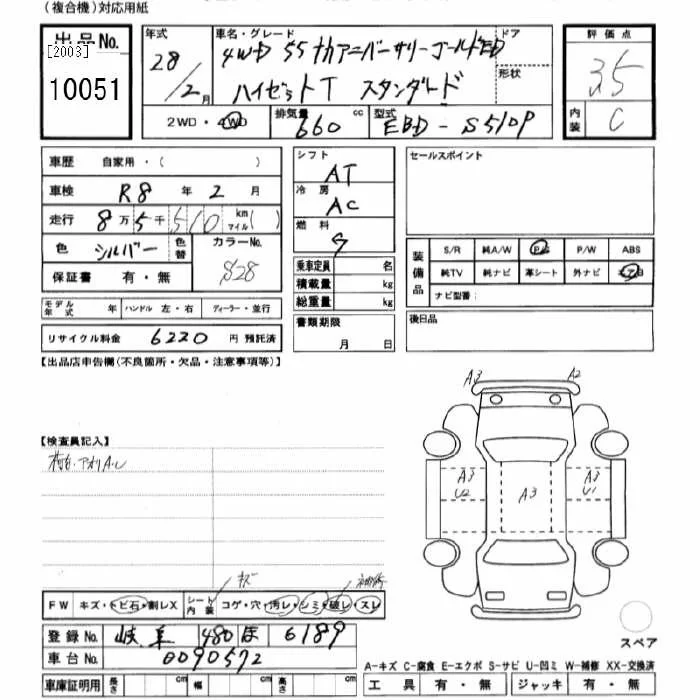 (複合機)対応用紙
出品No.
[2003]
10051
年式
28年
2月
車名・グレード
4WD 55ナカアニバーサリーゴールドED
ハイゼットT スタンダード
ドア
形状
2WD・4WD
排気量
660 cc
型式
EBD-S510P
評価点
3.5
内装
C
車歴 自家用・( )
車検 R8 年 2 月
走行 8万5千510 km マイル( )
色 シルバー 色替
カラーNo.
S28
保証書 有・無
モデル年式 年 ハンドル 左・右 ディーラー・並行
リサイクル料金 6220 円 預託済
シフト
AT
冷房
AC
燃料
G
乗車定員 名
積載量 kg
総重量 kg
書類期限
月 日
セールスポイント
装備品
S/R 純A/W P/S P/W ABS
純TV 純ナビ 革シート 外ナビ エアB
ナビ型番:
後日品
【出品店申告欄(不良箇所・欠品・注意事項等)】
【検査員記入】
荷台・アオリA.U
A3 A2
A3 U2
A3
A3 U1
キズ
FW キズ・トビ石・割レX
シート内装 コゲ・穴・汚レ・シミ・破レ・スレ
登録No. 岐阜 480 ほ 6189
車台No. 0090572
車庫証明用 長さ cm 幅 cm 高さ cm
スペア
A-キズ C-腐食 E-エクボ S-サビ U-凹ミ W-補修 XX-交換済
工具 有・無 ジャッキ 有・無